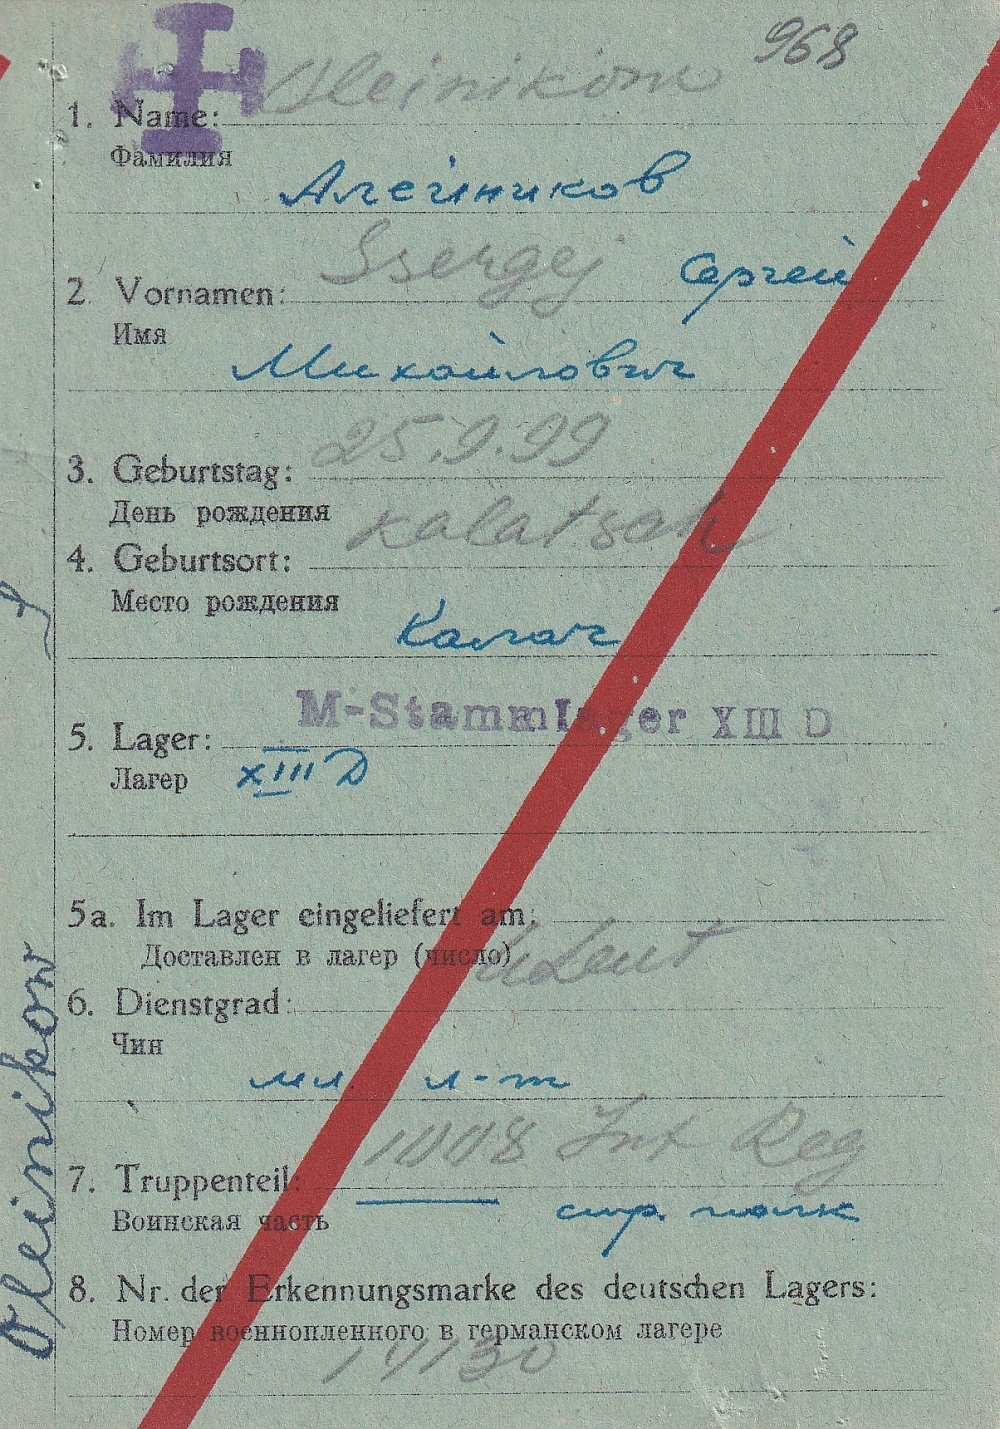 968
Oleinikow
1. Name:
Фамилия
Алейников
Ssergej Сергей
2. Vornamen:
Имя
Михайлович
25.9.99
3. Geburtstag:
День рождения
Kalatsch
4. Geburtsort:
Место рождения
Калач
M-Stammlager XIII D
5. Lager:
Лагер XIII D
5a. Im Lager eingeliefert am:
Доставлен в лагер (число)
Leut
6. Dienstgrad:
Чин
мл. л-т
1008 Inf Reg
7. Truppenteil:
Воинская часть стр. полк
8. Nr. der Erkennungsmarke des deutschen Lagers:
Номер военнопленного в германском лагере
14130
Oleinikow